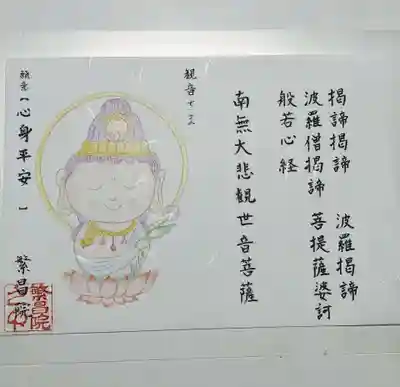 揭諦揭諦 波羅揭諦
波羅僧揭諦 菩提薩婆訶
般若心経
南無大悲觀世音菩薩
観音さま
願意【心身平安】
繁昌院
繁昌院